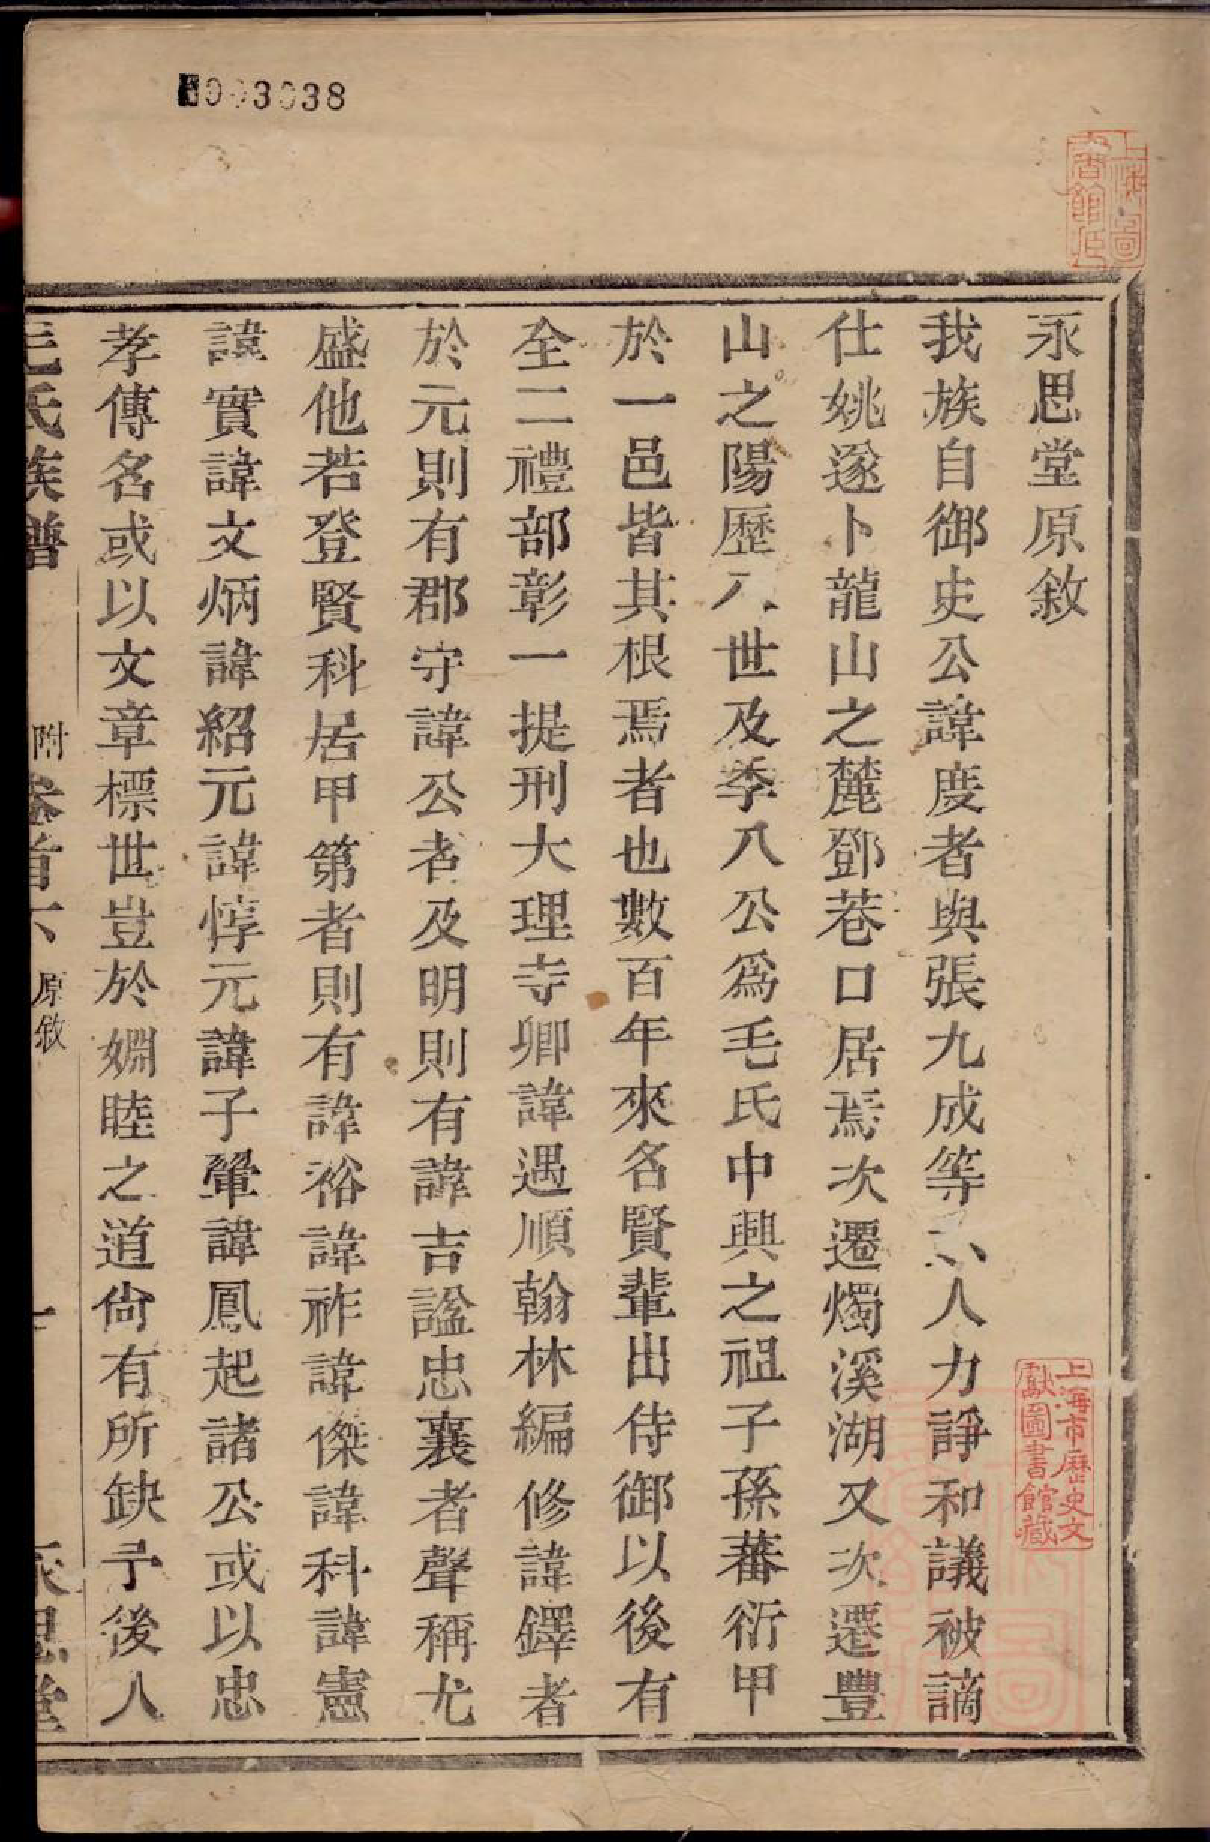 003038
上海圖書館藏
永思堂原敘
我族自御史公諱度者與張九成等六人力諍和議被謫
仕姚遂卜龍山之麓鄧巷口居焉次遷燭溪湖又次遷豐
山之陽歷八世及季八公爲毛氏中興之祖子孫蕃衍甲
於一邑皆其根焉者也數百年來名賢輩出侍御以後有
全二禮部彰一提刑大理寺卿諱遇順翰林編修諱鐸者
於元則有郡守諱公者及明則有諱吉諡忠襄者聲稱尤
盛他若登賢科居甲第者則有諱裕諱祚諱傑諱科諱憲
諱實諱文炳諱紹元諱惇元諱子翬諱鳳起諸公或以忠
孝傳名或以文章標世豈於婣睦之道尙有所缺予後人
毛氏族譜 附卷首下 原敘 一 永思堂
上海市歷史文
獻圖書館藏